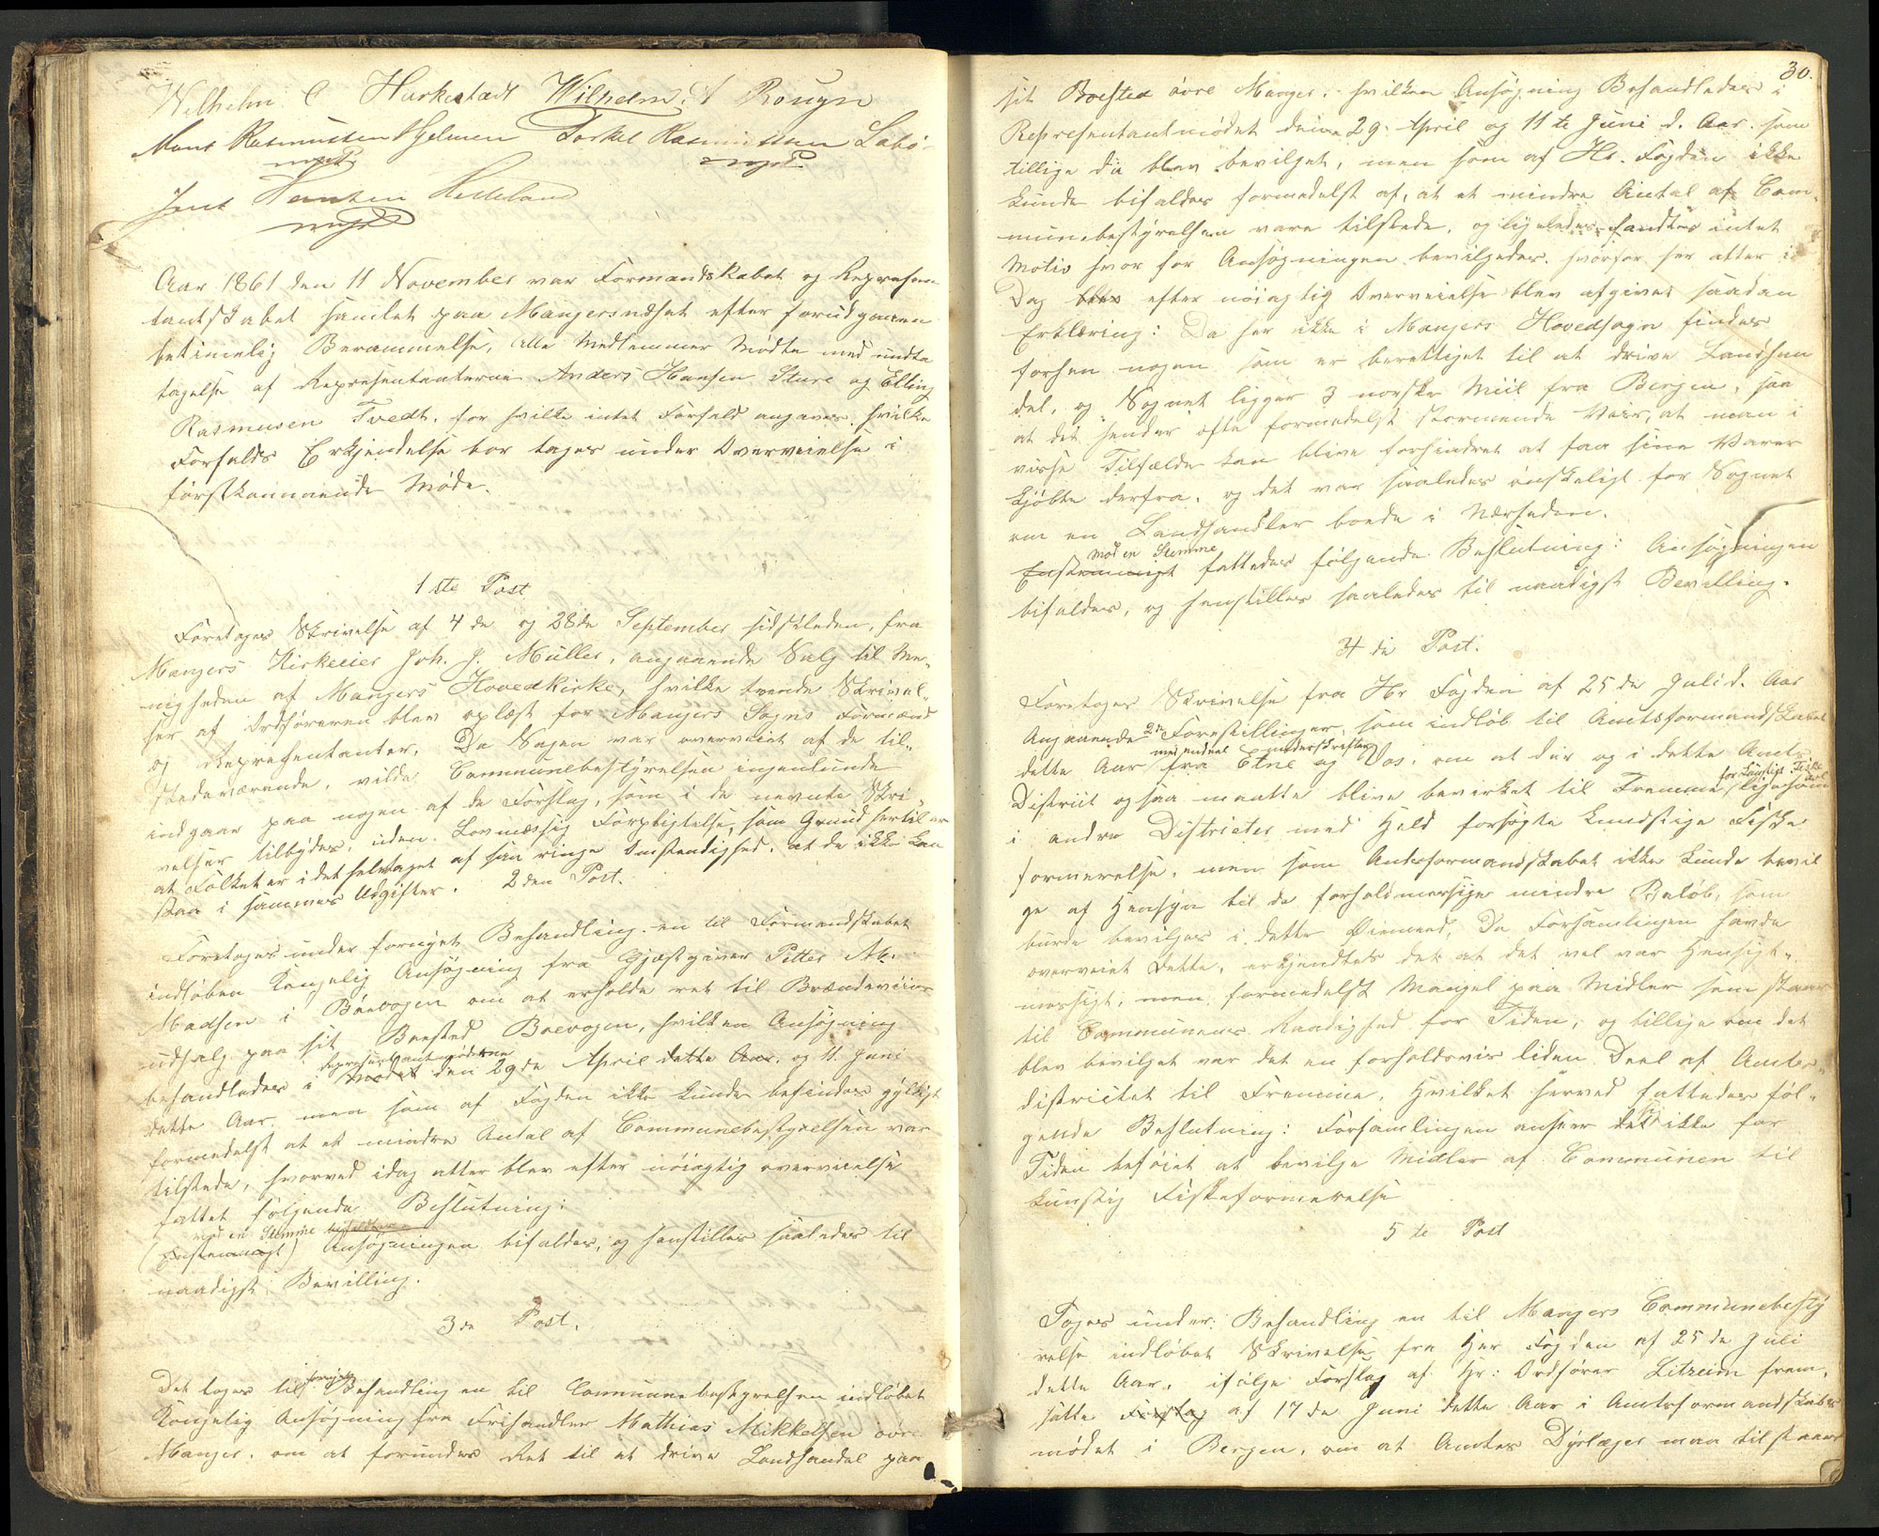 Wilhelm C Hurkestadt Wilhelm A Rougn
Mons Rasmussen Hjelmen Torkel Rasmussen Løbø
mpS mpS
Jens Hansen Helleland
mpS
Aar 1861 den 11 November var Formandskabet og Represen
tantskabet samlet paa Mangersnæset efter forudgaaen
betimelig Berammelse, alle Medlemmer mødte med undta
tagelse af Representanterne Anders Hansen Sture og Elling
Rasmusen Tvedt. for hvilke intet Forfald angaves. hvilke
Forfalds Erkjendelse bør tages under Overveielse i
førstkommende Møde.
1ste Post
Foretoges Skrivelse af 4de og 28de September sidstleden, fra
Mangers Kirkeeier Joh. J. Müller, angaaende Salg til Me-
nigheden af Mangers Hovedkirke, hvilke tvende Skrivel-
ser af Ordføreren blev oplæst for Mangers Sogns Formænd
og Representanter. Da Sagen var overveiet af de til-
stedeværende, vilde Communebestyrelsen ingenlunde
indgaae paa nogen af de Forslag, som i de nevnte Skri
velser tilbydes, uden Lovmæssig Forpligtelse, som Grund hertil er
at Folket er i det heletaget af saa ringe Omstendighed, at de ikke kan
staa i sammes Udgifter. 2den Post.
Foretoges under fornyet Behandling en til Formandskabet
indløben Kongelig Ansøgning fra Gjæstgiver Petter Ab.
Madsen i Bøevogen om at erholde ret til Brændeviins
udsalg paa sit Boested Bøevogen, hvilken Ansøgning
representantmøderne
behandledes i Mødet den 29de April dette Aar. og 11. Juni
dette Aar. men som af Fogden ikke kunde befindes gyldigt
formedelst at et mindre Antal af Communebestyrelsen var
tilstede, hvorved idag atter blev efter nøiagtig overveielse
fattet følgende Beslutning:
mod en Stemme bifaldes
(Enstemmigt) Ansøgningen bifaldes, og henstilles saaledes til
naadigst Bevilling.
3de Post.
fornyet
Det toges til Behandling en til Communebestyrelsen indløbet
Kongelig Ansøgning fra Frihandler Mathias Mikkelsen øvre
Manger. om at forundes Ret til at drive Landhandel paa
30.
sit Boested øvre Manger. hvilken Ansøgning Behandledes i
Representantmødet den 29. April og 11te Juni d. Aar. som
tillige da blev bevilget, men som af Hr. Fogden ikke
kunde bifaldes formedelst af, at et mindre Antal af Com-
munebestyrelsen vare tilstede, og ligeledes fandtes intet
Motiv hvor for Ansøgningen bevilgedes. hvorfor her atter i
Dag blev efter nøiagtig Overveielse blev afgivet saadan
Erklæring: Da her ikke i Mangers Hovedsogn findes
forhen nogen som er berettiget til at drive Landhan
del, og Sognet ligger 3 norske Miil fra Bergen, saa
at det hender ofte formedelst stormende Veir, at man i
visse Tilfælde kan blive forhindret at faa sine Varer
kjøbte derfra. og det var saaledes ønskeligt for Sognet
om en Landhandler boede i Nærheden.
mod en Stemme
Enstemmigt fattedes følgende Beslutning: Ansøgningen
bifaldes, og henstilles saaledes til naadigst Bevilling.
4de Post.
Foretoges Skrivelse fra Hr Fogden af 25de Juli d. Aar
Angaaende 2de Forestillinger, som indløb til Amtsformandskabet
med endeel underskrifter
dette Aar fra Etne og Vos. om at der og i dette Amts
for kunstigt Fiske
District ogsaa maatte blive bevirket til Fremme ligesom
i andre Districter med Held forsøgte kunstige Fiske
formerelse, men som Amtsformandskabet ikke kunde bevil
ge af Hensyn til de forholdmæssige mindre Beløb, som
burde bevilges i dette Øiemeed, Da Forsamlingen havde
overveiet dette, erkjendtes det at det vel var Hensigt-
mæssigt, men formedelst Mangel paa Midler som staar
til Communens Raadighed for Tiden, og tillige om det
blev bevilget var det en forholdsvis liden Deel af Amts-
districtet til Fremme, Hvilket herved fattedes føl-
gende Beslutning: Forsamlingen anseer det sig ikke for
Tiden beføiet at bevilge Midler af Communen til
kunstig Fiskeformerelse
5te Post
Toges under Behandling en til Mangers Communebesty
relse indløbet Skrivelse fra Her Fogden af 25de Juli
dette Aar, ifølge Forslag af Hr: Ordfører Litzeim frem-
satte Forslag af 17de Juni dette Aar i Amtsformandskabs
mødet i Bergen, om at Amtes Dyrlæger maa tilstaaes